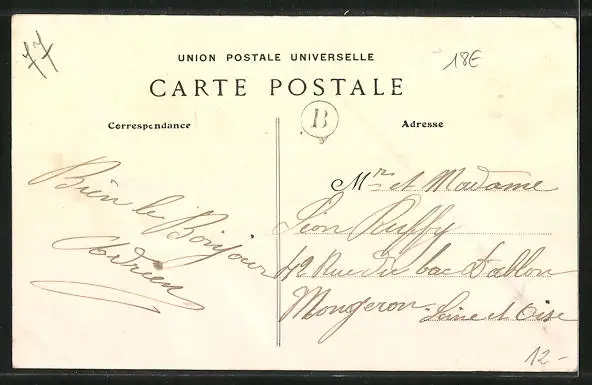 77
18€
UNION POSTALE UNIVERSELLE
CARTE POSTALE
B
Correspondance
Adresse
Bien le Bonjour
Adrien
Mr et Madame
Léon Ruffy
42 Rue du bac d'ablon
Mongeron - Seine et Oise
12.-